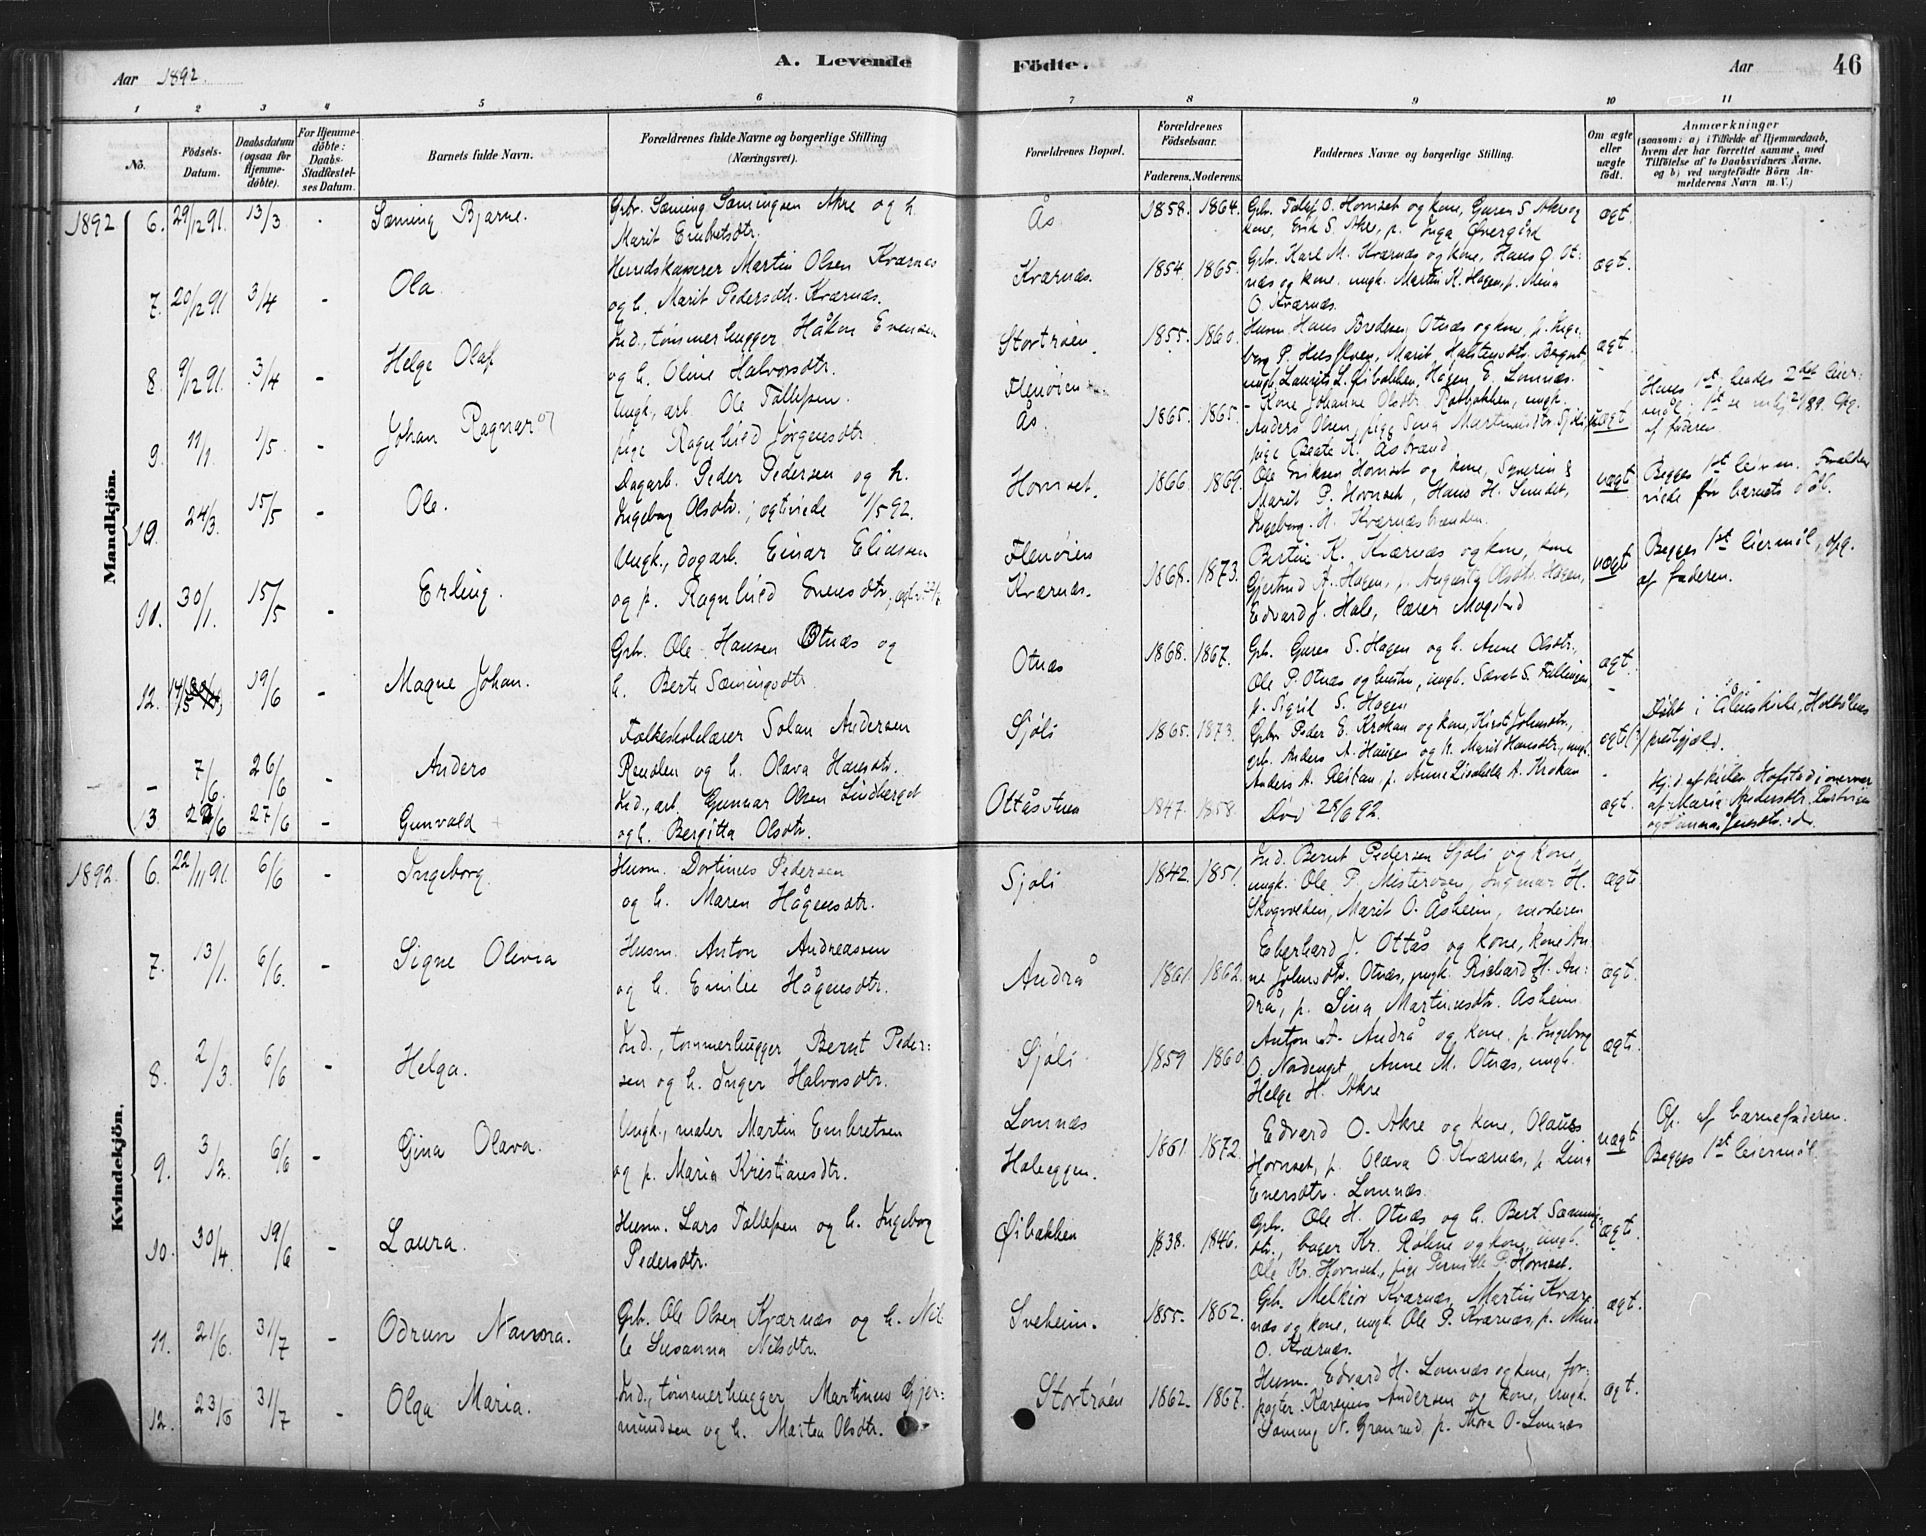 Aar 1892.
A. Levende
Födte.
Aar
46
1 2 3 4 5 6 7 8 9 10 11
No.
Födsels-
Datum.
Daabsdatum
(ogsaa for
Hjemme-
döbte).
For Hjemme-
döbte:
Daabs-
Stadfæstel-
ses Datum.
Barnets fulde Navn.
Forældrenes fulde Navne og borgerlige Stilling
(Næringsvei).
Forældrenes Bopæl.
Forældrenes
Födselsaar.
Faderens. Moderens.
Faddernes Navne og borgerlige Stilling.
Om ægte
eller
uægte
födt.
Anmærkninger
(saasom: a) i Tilfælde af Hjemmedaab,
hvem der har forrettet samme, med
Tilföielse af to Daabsvidners Navne,
og b) ved uægtefödte Börn An-
melderens Navn m. V.)
Mandkjön.
1892 6. 29/12 91. 13/3 - Sæming Bjarne.
Gbr. Sæming Sæmingsen Akre og h.
Marit Embretsdtr.
Ås 1858. 1864.
Gbr. O. Hornset og kone, Guren S. Akre og
kone, Erik S. Akre, p. Inga Øvergård
ægt.
7. 20/12 91 3/4 - Ola
Herredskasserer Martin Olsen Kværnes
og h. Marit Pedersdtr. Kværnæs.
Kværnæs. 1854. 1865.
Gbr. Karl M. Kværnæs og kone, Hans O. Ot-
næs og kone, ungk. Martin K. Hagen, p. Mina
O. Kværnæs.
ægt.
8. 9/12 91. 3/4 - Helge Olaf
Ind., tømmerhugger Håkon Evensen
og h. Oline Halvorsdtr.
Stortrøen. 1855. 1860.
Husm. Hans Bredesen Otnæs og kone, p. Inge-
borg P. Husfloen, Marit Halstensdtr.
ungk. Laurits L. Øibakken, Hågen E. Lomnæs.
ægt
9. 11/1 1/5 - Johan Ragnar
Ungk., arb. Ole Tollefsen.
pige Ragnhild Jørgensdtr.
Flenøien
Ås 1865. 1865.
- Kone Johanne Olsdtr. ungk.
Anders Olsen, pige Sina Martinusdtr. Sjøli,
pige Beate K. Åsbrænd
uægt
Hans 1st, hendes 2det leier-
mål. 1st se 2/89. Opg.
af faderen.
10. 24/3 15/5 - Ole.
Dagarb. Peder Pedersen og h.
Ingeborg Olsdtr.; ægteviede 1/5 92.
Hornset. 1866. 1869.
Ole Eriksen Hornset og kone, Syverin &
Marit P. Hornset, Hans H. Sundet,
Ingeborg H. Kværnæsbrænden.
uægt
Begges 1st leierm. Forældre
viede før barnets dåb.
11. 30/1. 15/5 - Erling.
Ungk., dagarb. Einar Eliassen
og p. Ragnhild Evensdtr.,
Flenøien
Kværnæs. 1868. 1873.
Bertin K. Kværnæs og kone, kone
Gjertrud A. Hagen, Augusta Olsdtr. Hagen,
Edvard J. Hale, lærer Mogstad
uægt
Begges 1st leiermål, opg.
af faderen.
12. 14/5 19/6 - Magne Johan.
Gbr. Ole Hansen Otnæs og
h. Berte Sæmingsdtr.
Otnæs 1868. 1867.
Gbr. Guren S. Hagen og h. Anne Olsdtr.,
Ole P. Otnæs og hustru, ungk. Sævat S. Fallingen
p. Sigrid S. Hagen
ægt.
- 7/6. 26/6 - Anders
Folkeskolelærer Solan Andersen
Rendlen og h. Olava Hansdtr.
Sjøli 1865. 1873.
Gbr. Peder E. Krokan og kone, Kirsti Johnsdtr.,
gbr. Anders A. Haugen og h. Marit Hansdtr., ungk.
Anders A. Reitan, p. Anne Lisabeth A. Krokan
ægt
Døbt i Ålens kirke, Holtålens
prestgjæld.
13 6 27/6 - Gunvald
Ind., arb. Gunnar Olsen Lindberget
og h. Bergitta Olsdtr.
Ottåsstuen 1847. 1858.
Død 28/6 92.
ægt.
Hj.d. af Hofstad i overvær
af Maria Andersdtr.
Kvindekjön.
1892. 6. 22/11 91. 6/6 - Ingeborg.
Husm. Dortinus Pedersen
og h. Maren Hågensdtr.
Sjøli 1842. 1851.
Ind. Bernt Pedersen Sjøli og kone,
ungk. Ole P. Misterosen, Ingmar H.
Skogvolden, Marit O. Åsheim, moderen
ægt.
7. 13/1. 6/6. - Signe Olivia
Husm. Anton Andreassen
og h. Emilie Hågensdtr.
Andrå 1861. 1862.
Eberhard J. Ottås og kone, kone An-
ne Johnsdtr. Otnæs, ungk. Richard H. An-
drå, p. Sina Martinusdtr. Åsheim
ægt.
8. 2/3. 6/6 - Helga.
Ind., tømmerhugger Bernt Peder-
sen og h. Inger Halvorsdtr.
Sjøli 1859 1860
Anton A. Andrå og kone, p. Ingeborg
O. Nordenget, Anne M. Otnæs, ungk.
Helge H. Akre
ægt.
9. 3/2. 6/6 - Gina Olava.
Ungk., maler Martin Embretsen
og p. Maria Kristiansdtr.
Lomnæs
Haheggen. 1861. 1872.
Edvard O. Akre og kone, Olaus
Hornset, p. Olava O. Kværnæs, p. Lina
Evensdtr. Lomnæs.
uægt
Op. af barnefaderen.
Begges 1st leiermål.
10. 30/4 19/6 - Laura.
Husm. Lars Tollefsen og h. Ingeborg
Pedersdtr.
Øibakken 1838. 1846.
Gbr. Ole H. Otnæs og h. Bert Sæmings-
dtr., bager Kr. Røhne og kone, ungk.
Ole Kr. Hornset, pige Pernille P. Hornset.
ægt.
11. 21/6. 31/7 - Odrun Nanna.
Gbr. Ole Olsen Kværnæs og h. Nil-
le Susanna Nilsdtr.
Sveheim. 1855. 1862.
Gbr. Melkior Kværnæs, Martin Kvær-
næs og kone, ungk. Ole P. Kværnæs, p. Mina
O. Kværnæs.
ægt.
12. 23/6 31/7 - Olga Maria.
Ind., tømmerhugger Martinus Gjer-
mundsen og h. Marten Olsdtr.
Stortrøen 1862. 1867.
Husm. Edvard H. Lomnæs og kone, for-
pagter Karelius Andersen og kone, ungk.
Sæming N. Granrud, p. Thora O. Lomnæs
ægt.